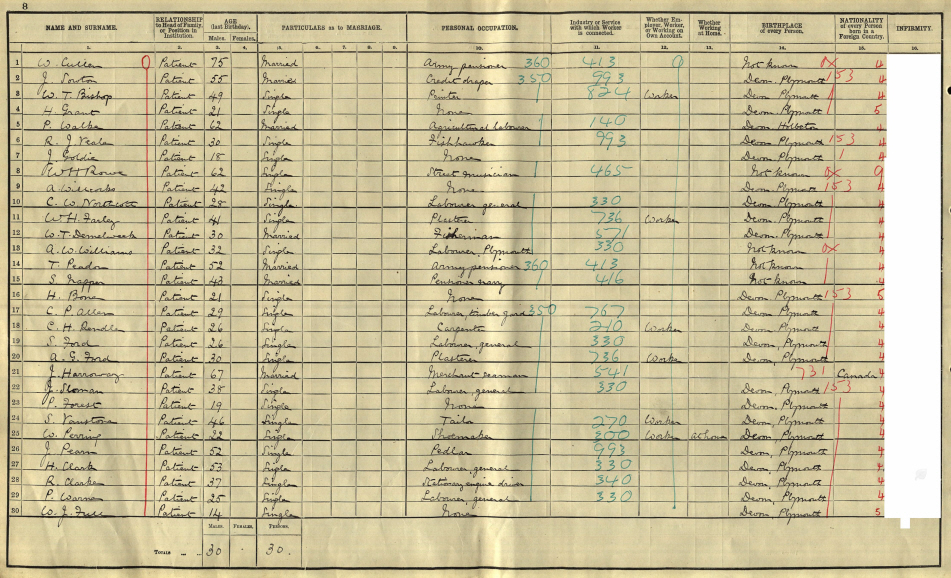 8
NAME AND SURNAME. RELATIONSHIP to Head of Family, or Position in Institution. AGE (last Birthday). PARTICULARS as to MARRIAGE. PERSONAL OCCUPATION. Industry or Service with which Worker is connected. Whether Employer, Worker, or Working on Own Account. Whether Working at Home. BIRTHPLACE of every Person. NATIONALITY of every Person born in a Foreign Country. INFIRMITY.
Males. Females.
1. 2. 3. 4. 5. 6. 7. 8. 9. 10. 11. 12. 13. 14. 15. 16.
1 W. Cullen Patient 75 Married Army pensioner 360 413 Not known 0x 4
2 J. Patient 55 Married Credit draper 350 993 Devon, Plymouth 153 4
3 W. T. Bishop Patient 49 Single Printer 824 Worker Devon, Plymouth 4
4 H. Grant Patient 21 Single None Devon, Plymouth 5
5 P. Patient 62 Married Agricultural labourer 140 Devon Holbeton 4
6 R. J. Veale Patient 30 Single Fishhawker 993 Devon, Plymouth 153 4
7 J. Goldie Patient 18 Single None Devon, Plymouth 4
8 W H Rowe Patient 62 Single Street musician 465 Not known 0x 9
9 A. Willcocks Patient 42 Single None Devon, Plymouth 153 4
10 C. W. Northcott Patient 28 Single Labourer general 330 Devon, Plymouth 4
11 W. H. Farley Patient 41 Single 736 Worker Devon, Plymouth 4
12 W. T. Patient 30 Married Fisherman 571 Devon, Plymouth 4
13 A. W. Williams Patient 32 Single Labourer, Plymouth 330 Not known 0x 4
14 T. Patient 52 Married Army pensioner 360 413 Not known 4
15 S. Napper Patient 43 Married Pensioner navy 416 Not known 4
16 H. Bone Patient 21 Single None Devon, Plymouth 153 5
17 C. P. Allen Patient 29 Single Labourer, timber yard 350 767 Devon, Plymouth 4
18 C. H. Rendle Patient 26 Single Carpenter 210 Worker Devon, Plymouth 4
19 S. Ford Patient 26 Single Labourer, general 330 Devon, Plymouth 4
20 A. G. Ford Patient 30 Single Plasterer 736 Worker Devon, Plymouth 4
21 J. Harroway Patient 67 Married Merchant seaman 541 731 Canada 4
22 J. Sloman Patient 38 Single Labourer, general 330 Devon, Plymouth 153 4
23 P. Forest Patient 19 Single None Devon, Plymouth 4
24 S. Vanstone Patient 46 Single Tailor 270 Worker Devon, Plymouth 4
25 W. Perring Patient 22 Single Shoemaker 300 Worker at home Devon, Plymouth 4
26 J. Pearn Patient 52 Single Pedlar 993 Devon, Plymouth 4
27 H. Clarke Patient 53 Single Labourer, general 330 Devon, Plymouth 4
28 R. Clarke Patient 37 Single Stationary engine driver 340 Devon, Plymouth 4
29 P. Warne Patient 25 Single Labourer, general 330 Devon, Plymouth 4
30 W. J. Patient 14 Single None Devon, Plymouth 5
MALES. FEMALES. PERSONS.
TOTALS ... ... 30 - 30.